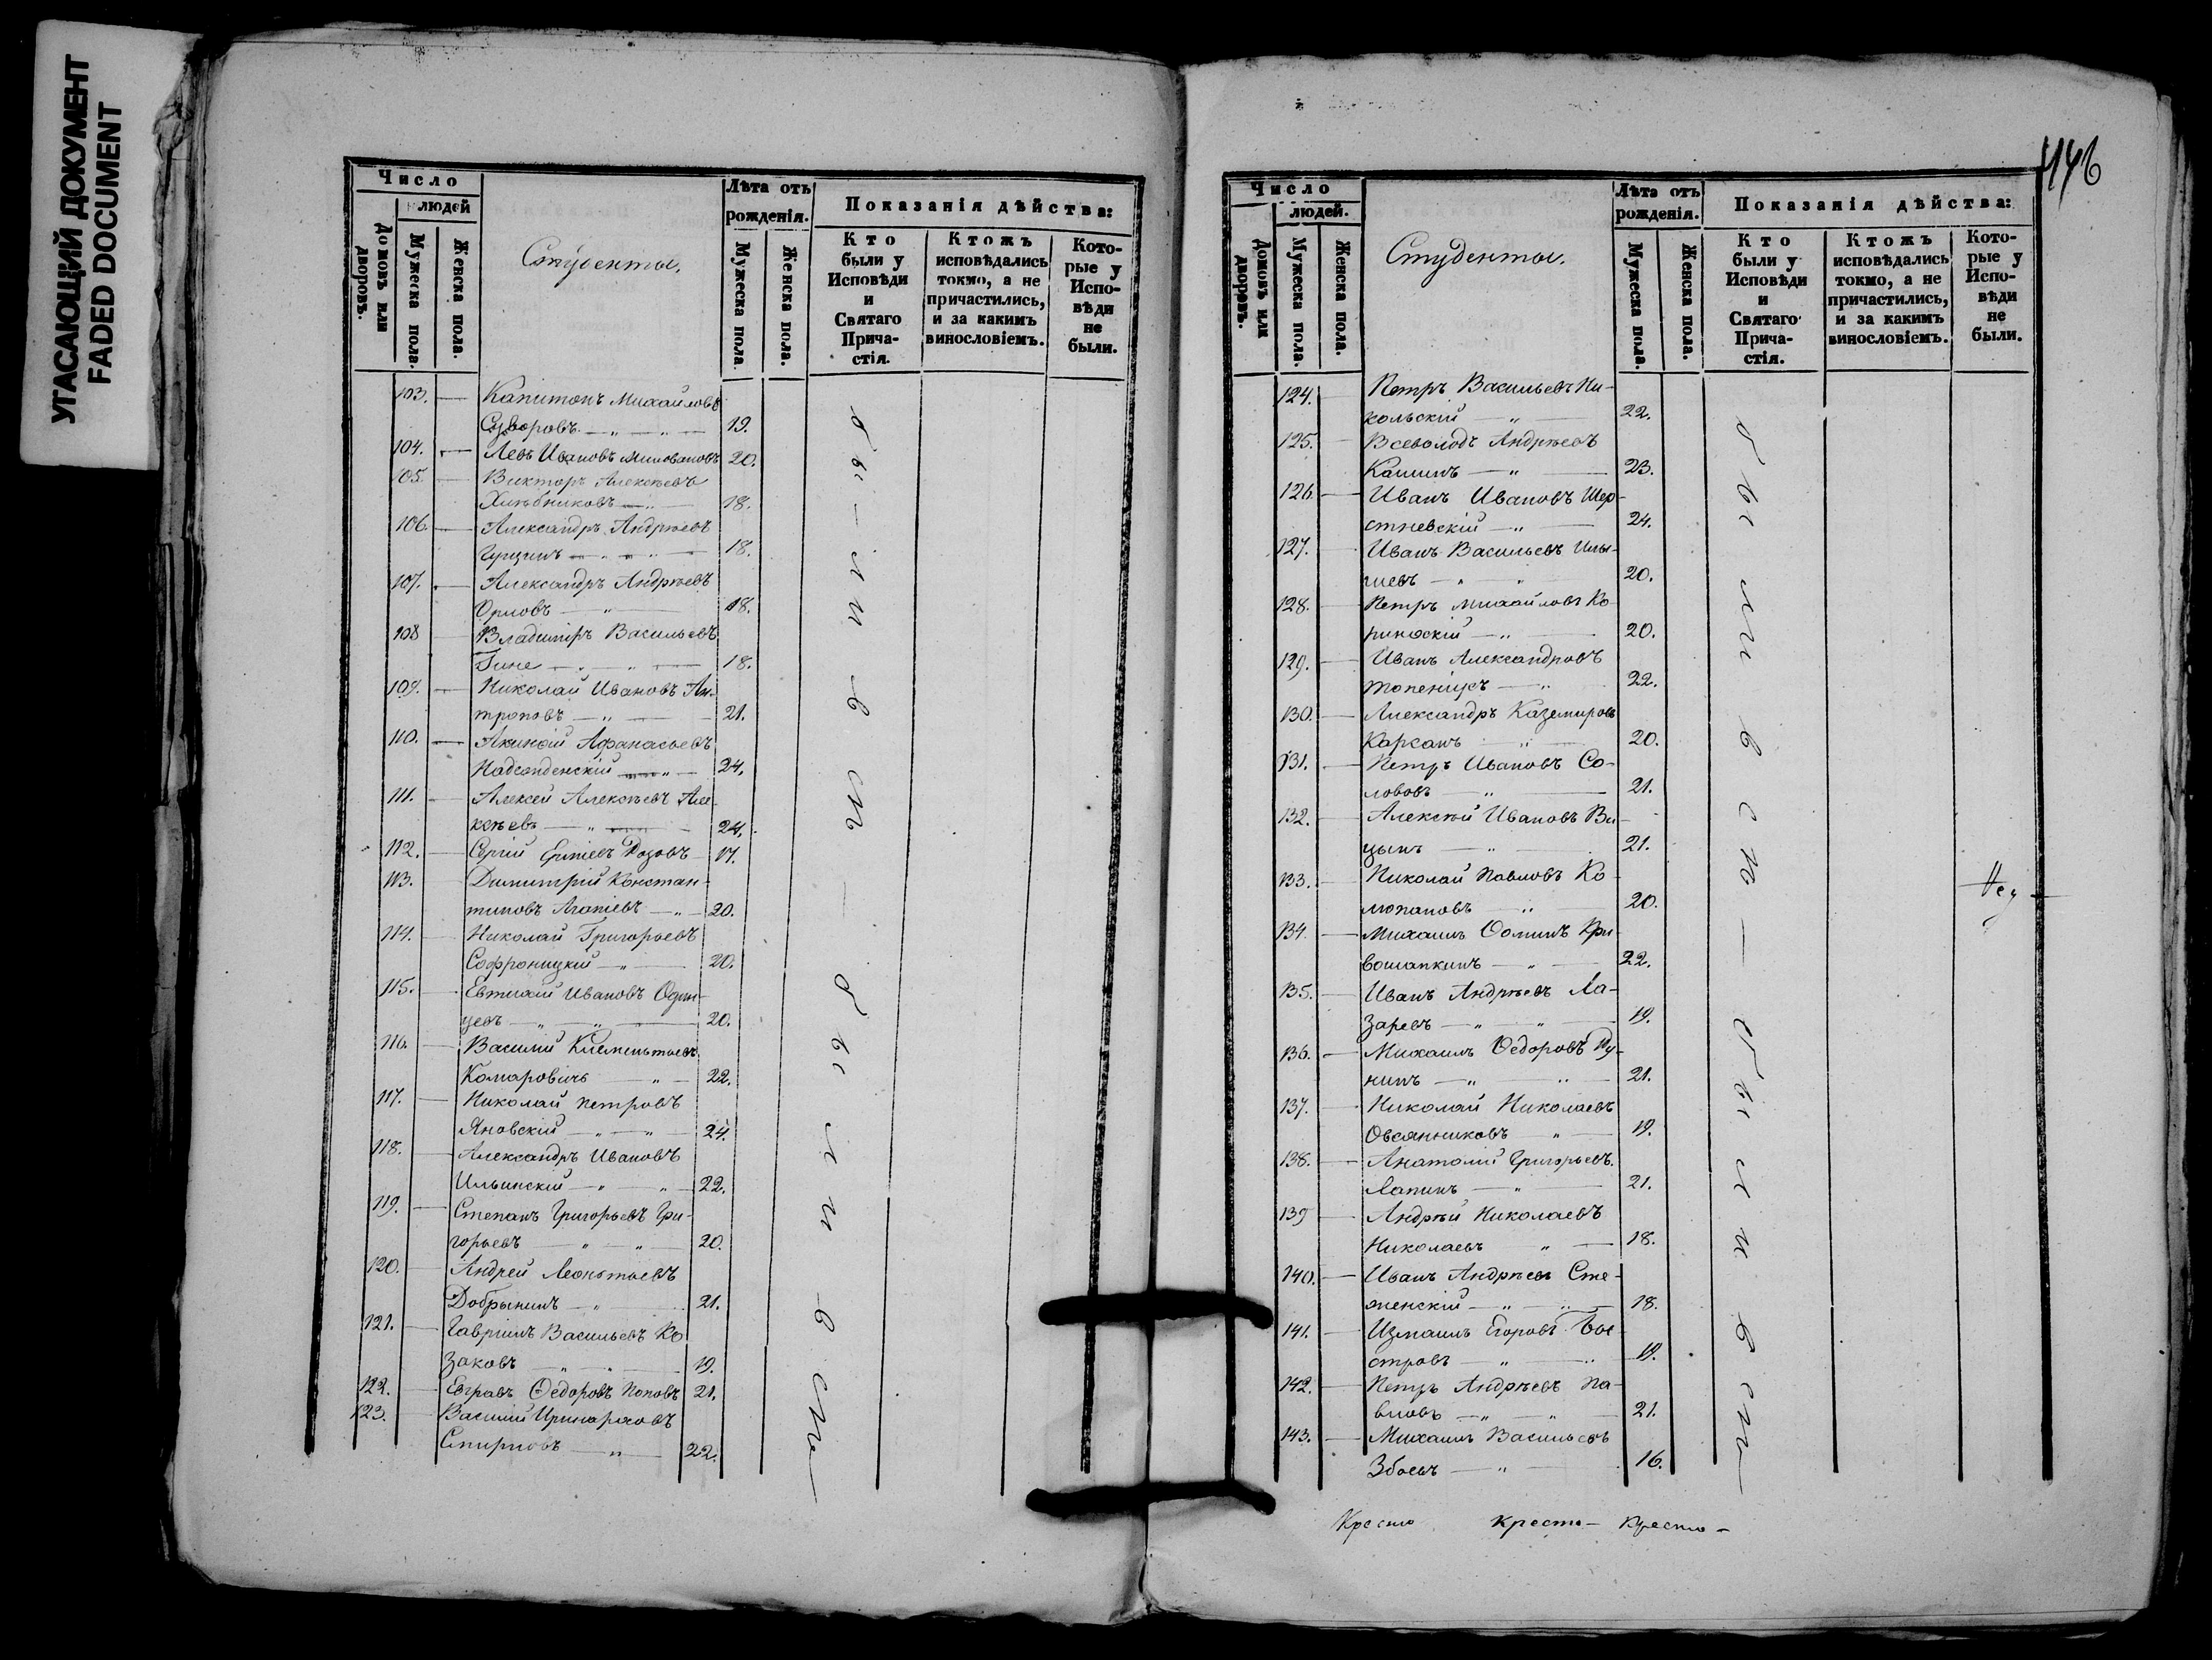 УГАСАЮЩИЙ ДОКУМЕНТ
FADED DOCUMENT
Число
людей
Домовъ или дворовъ.
Мужеска пола.
Женска пола.
Студенты.
Лѣта отъ рожденія.
Мужеска пола.
Женска пола.
Показанія дѣйства:
Кто были у Исповѣди и Святаго Прича-стія.
Ктожъ исповѣдались токмо, а не причастились, и за какимъ винословіемъ.
Кото-рые у Испо-вѣди не были.
103. — Капитонъ Михайловъ
Суворовъ — „ — „ — 19.
104. — Левъ Ивановъ Миловановъ 20.
105. — Викторъ Алексѣевъ
Хлѣбниковъ — „ — 18.
106. — Александръ Андреевъ
Гущинъ — „ — „ — 18.
107. — Александръ Андреевъ
Орловъ — „ — 18.
108 — Владиміръ Васильевъ
Гине — „ — „ — 18.
109. — Николай Ивановъ Ан-
троповъ — „ — 21.
110. — Афанасьевъ
— „ — 24.
111. — Алексей Алексѣевъ Але-
ксѣевъ — „ — 24.
112. — Сергій 17.
113. — Димитрій Констан-
тиновъ Агапіевъ — „ — 20.
114. — Николай Григорьевъ
Софроницкій — „ — 20.
115. — Евтихій Ивановъ Один-
цевъ — „ — „ — 20.
116. — Василій Клементьевъ
Комаровичъ — „ — 22.
117. — Николай Петровъ
Яновскій — „ — „ — 24.
118. — Александръ Ивановъ
Ильинскій — „ — „ — 22.
119. — Степанъ Григорьевъ Гри-
горьевъ — „ — „ — 20.
120. — Андрей Леонтьевъ
Добрынинъ — „ — 21.
121. — Гавріилъ Васильевъ Ко
заковъ — „ — „ — 19.
122. — Евграфъ Ѳедоровъ Поповъ 21.
123. — Василій Иринарховъ
Смирновъ — „ — 22.
были в ст
— были в ст
446
Число
людей.
Домовъ или дворовъ.
Мужеска пола.
Женска пола.
Студенты.
Лѣта отъ рожденія.
Мужеска пола.
Женска пола.
Показанія дѣйства:
Кто были у Исповѣди и Святаго Прича-стія.
Ктожъ исповѣдались токмо, а не причастились, и за какимъ винословіемъ.
Кото-рые у Испо-вѣди не были.
124. — Петръ Васильевъ Ни-
кольскій — „ — 22.
125. — Всеволодъ Андреевъ
Кашинъ — „ — 23.
126. — Иванъ Ивановъ Шер-
стневскій — „ — 24.
127. — Иванъ Васильевъ
— „ — „ 20.
128. — Петръ Михайловъ Ко-
ринѳскій — „ — 20.
129. — Иванъ Александровъ
— „ 22.
130. — Александръ Каземировъ
— „ — 20.
131. — Петръ Ивановъ Со-
лововъ — „ — 21.
132. — Алексѣй Ивановъ Ви-
цынъ — „ — 21.
133. — Николай Павловъ Ко
— „ — 20.
134. — Михаилъ Ѳоминъ Кри-
вошапкинъ — „ — 22.
135. — Иванъ Андреевъ Ла-
заревъ — „ — „ — 19.
136. — Михаилъ Ѳедоровъ
— „ — „ — 21.
137. — Николай Николаевъ
Овсянниковъ — „ — 19.
138. — Анатолій Григорьевъ.
Лапинъ — „ — 21.
139 — Андрѣй Николаевъ
Николаевъ — „ — 18.
140. — Иванъ Андреевъ Сте-
— „ — „ — 18.
141. — Измаилъ Егоровъ Бы-
стровъ — „ — „ 19.
142. — Петръ Андрѣевъ Па-
вловъ — „ — „ — 21.
143. — Михаилъ Васильевъ
Збоевъ — „ — 16.
были в ст
— были в ст
Кресто кресто — кресто —